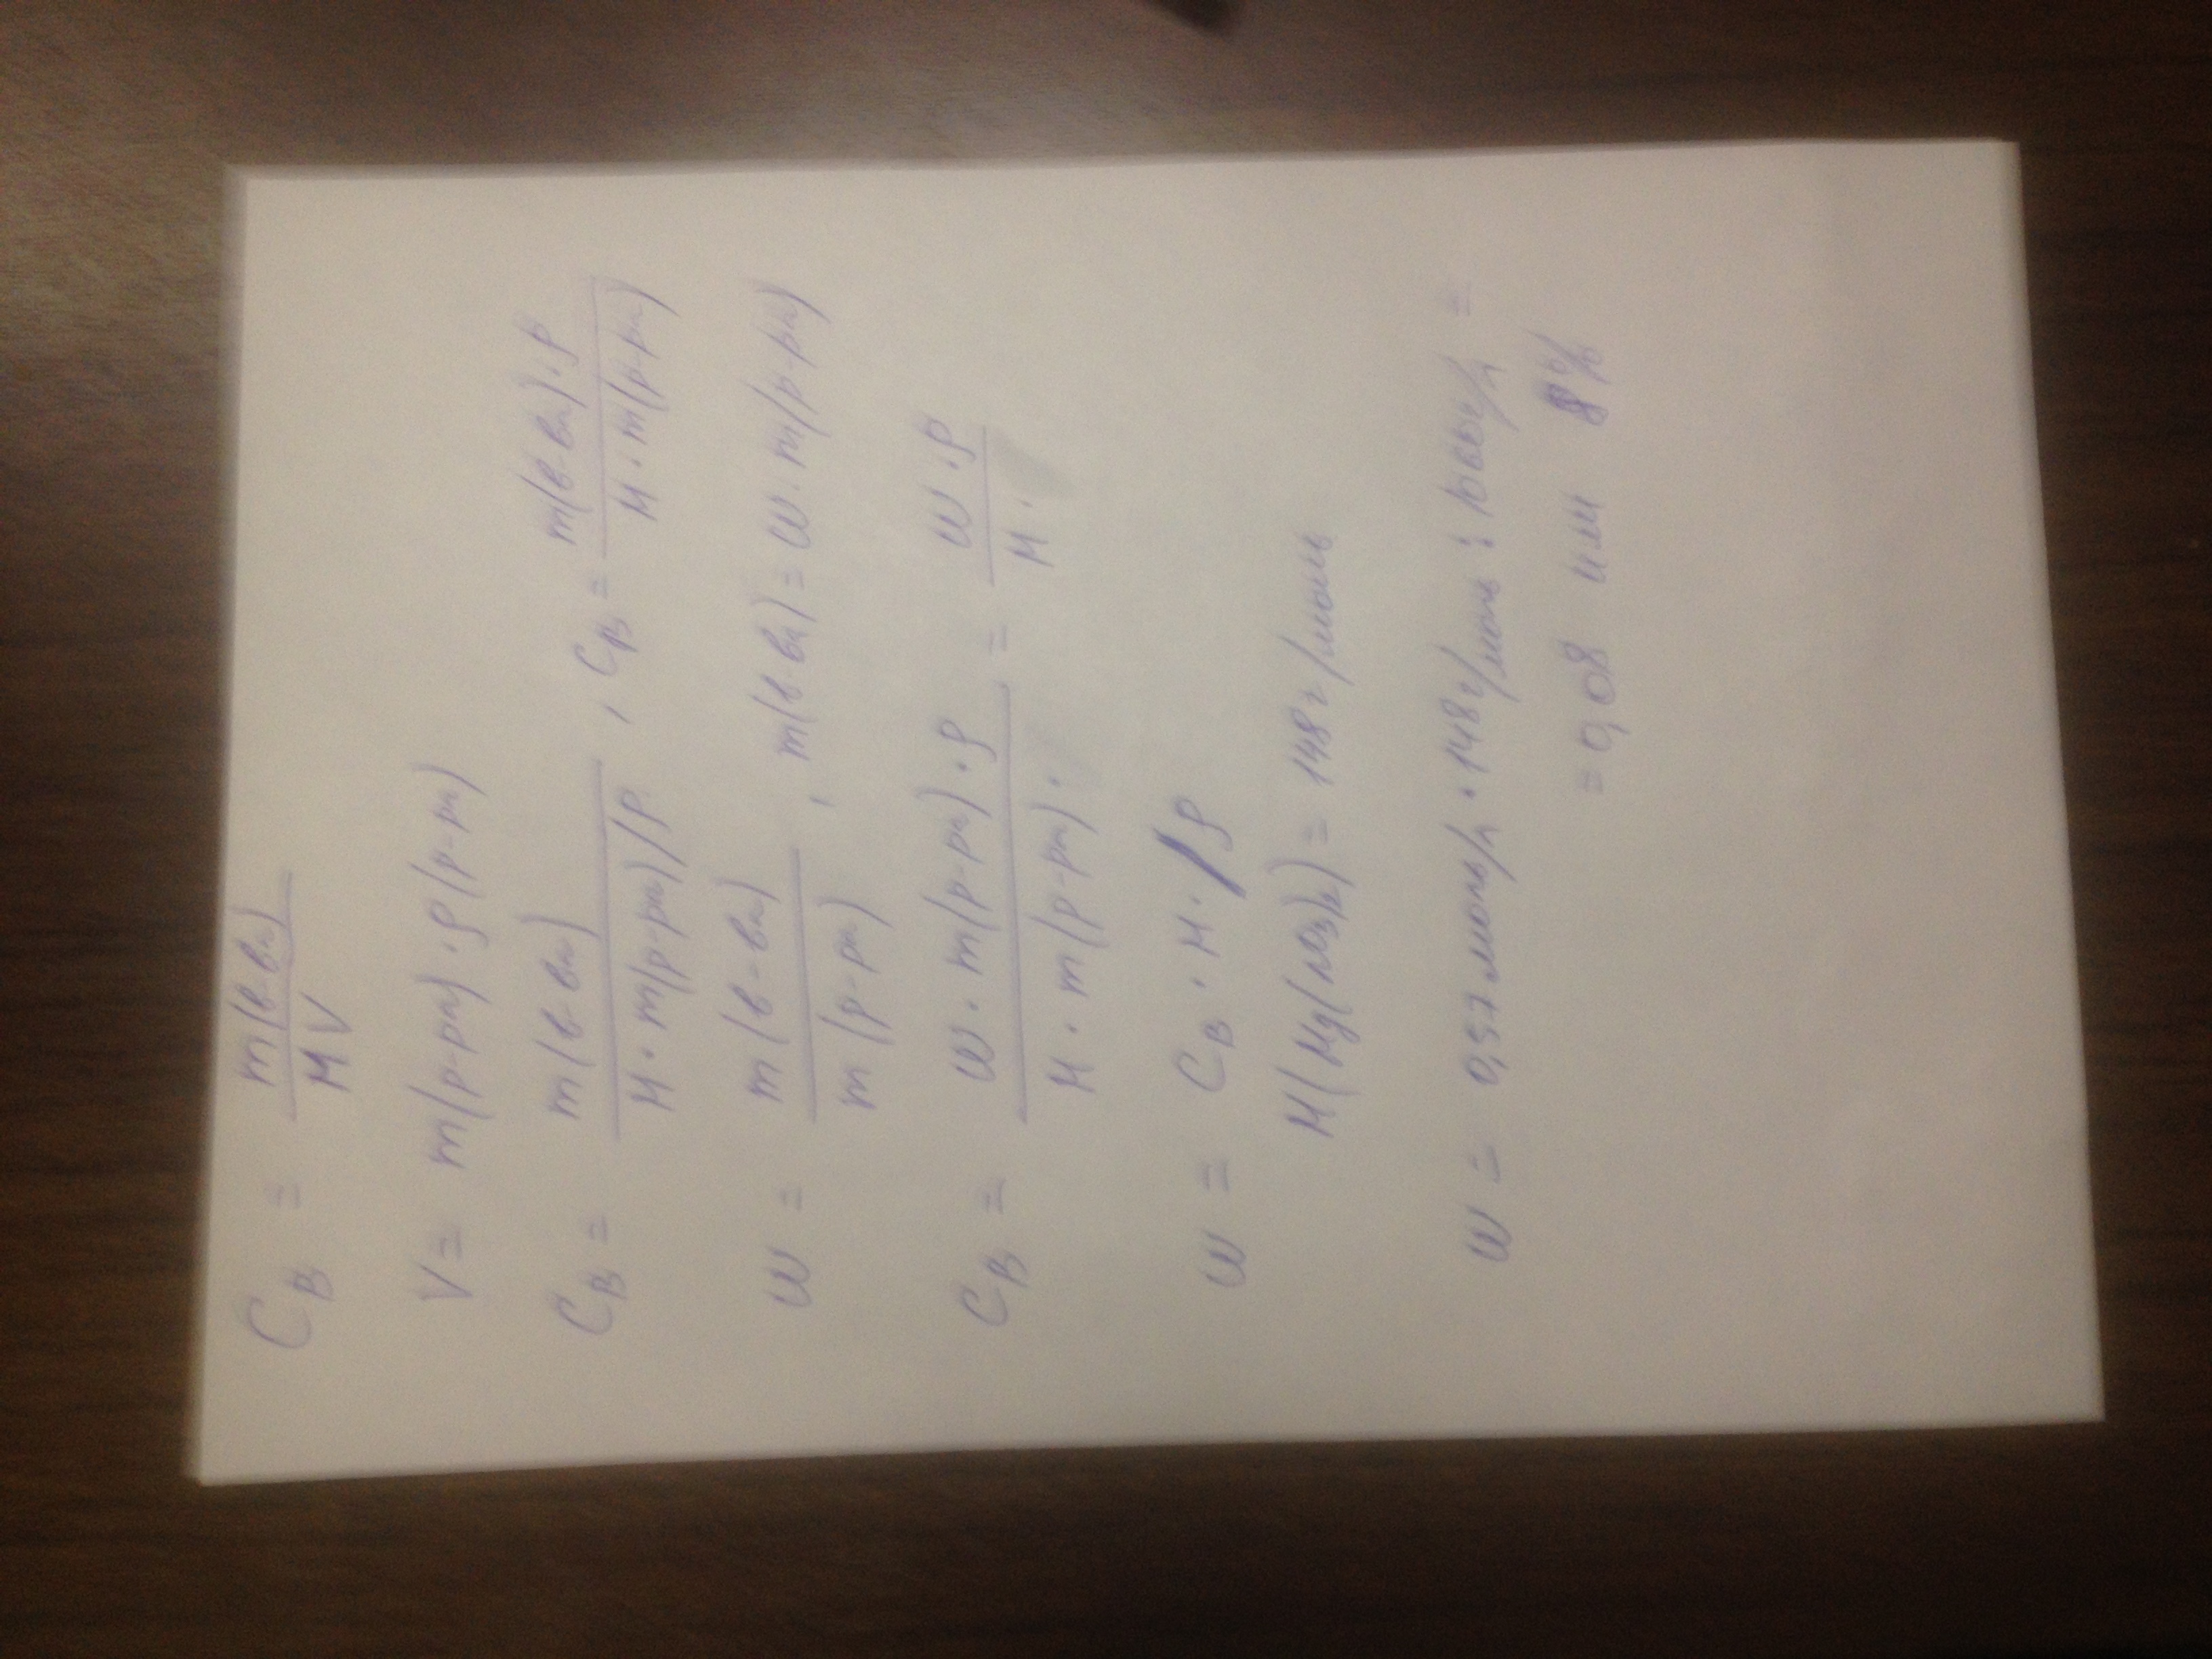 C_B = m(в-ва) / MV
V = m(р-ра) · ρ(р-ра)
C_B = m(в-ва) / M · m(р-ра)/ρ , C_B = m(в-ва) · ρ / M · m(р-ра)
w = m(в-ва) / m(р-ра) , m(в-ва) = w · m(р-ра)
C_B = w · m(р-ра) · ρ / M · m(р-ра) · = w · ρ / M ·
w = C_B · M · / ρ
M(Mg(NO3)2) = 148 г/моль
w = 0,57 моль/л · 148 г/моль : г/л =
= 0,08 или 8%